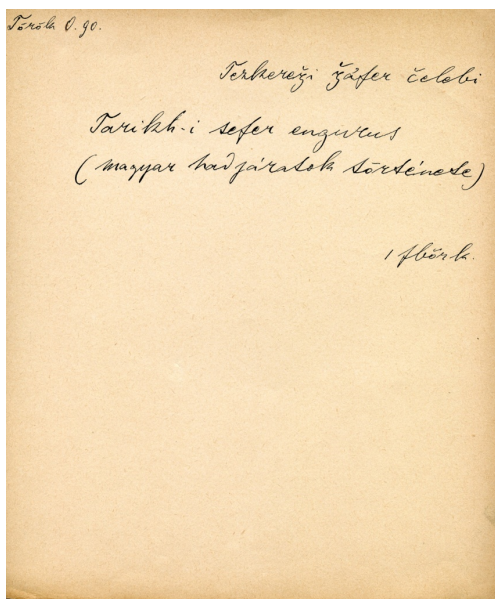 Török O. 90.
Tezkereǯi ǯáfer čelebi
Tarikh-i sefer engurus
(magyar hadjáratok története)
1 flbőrk.